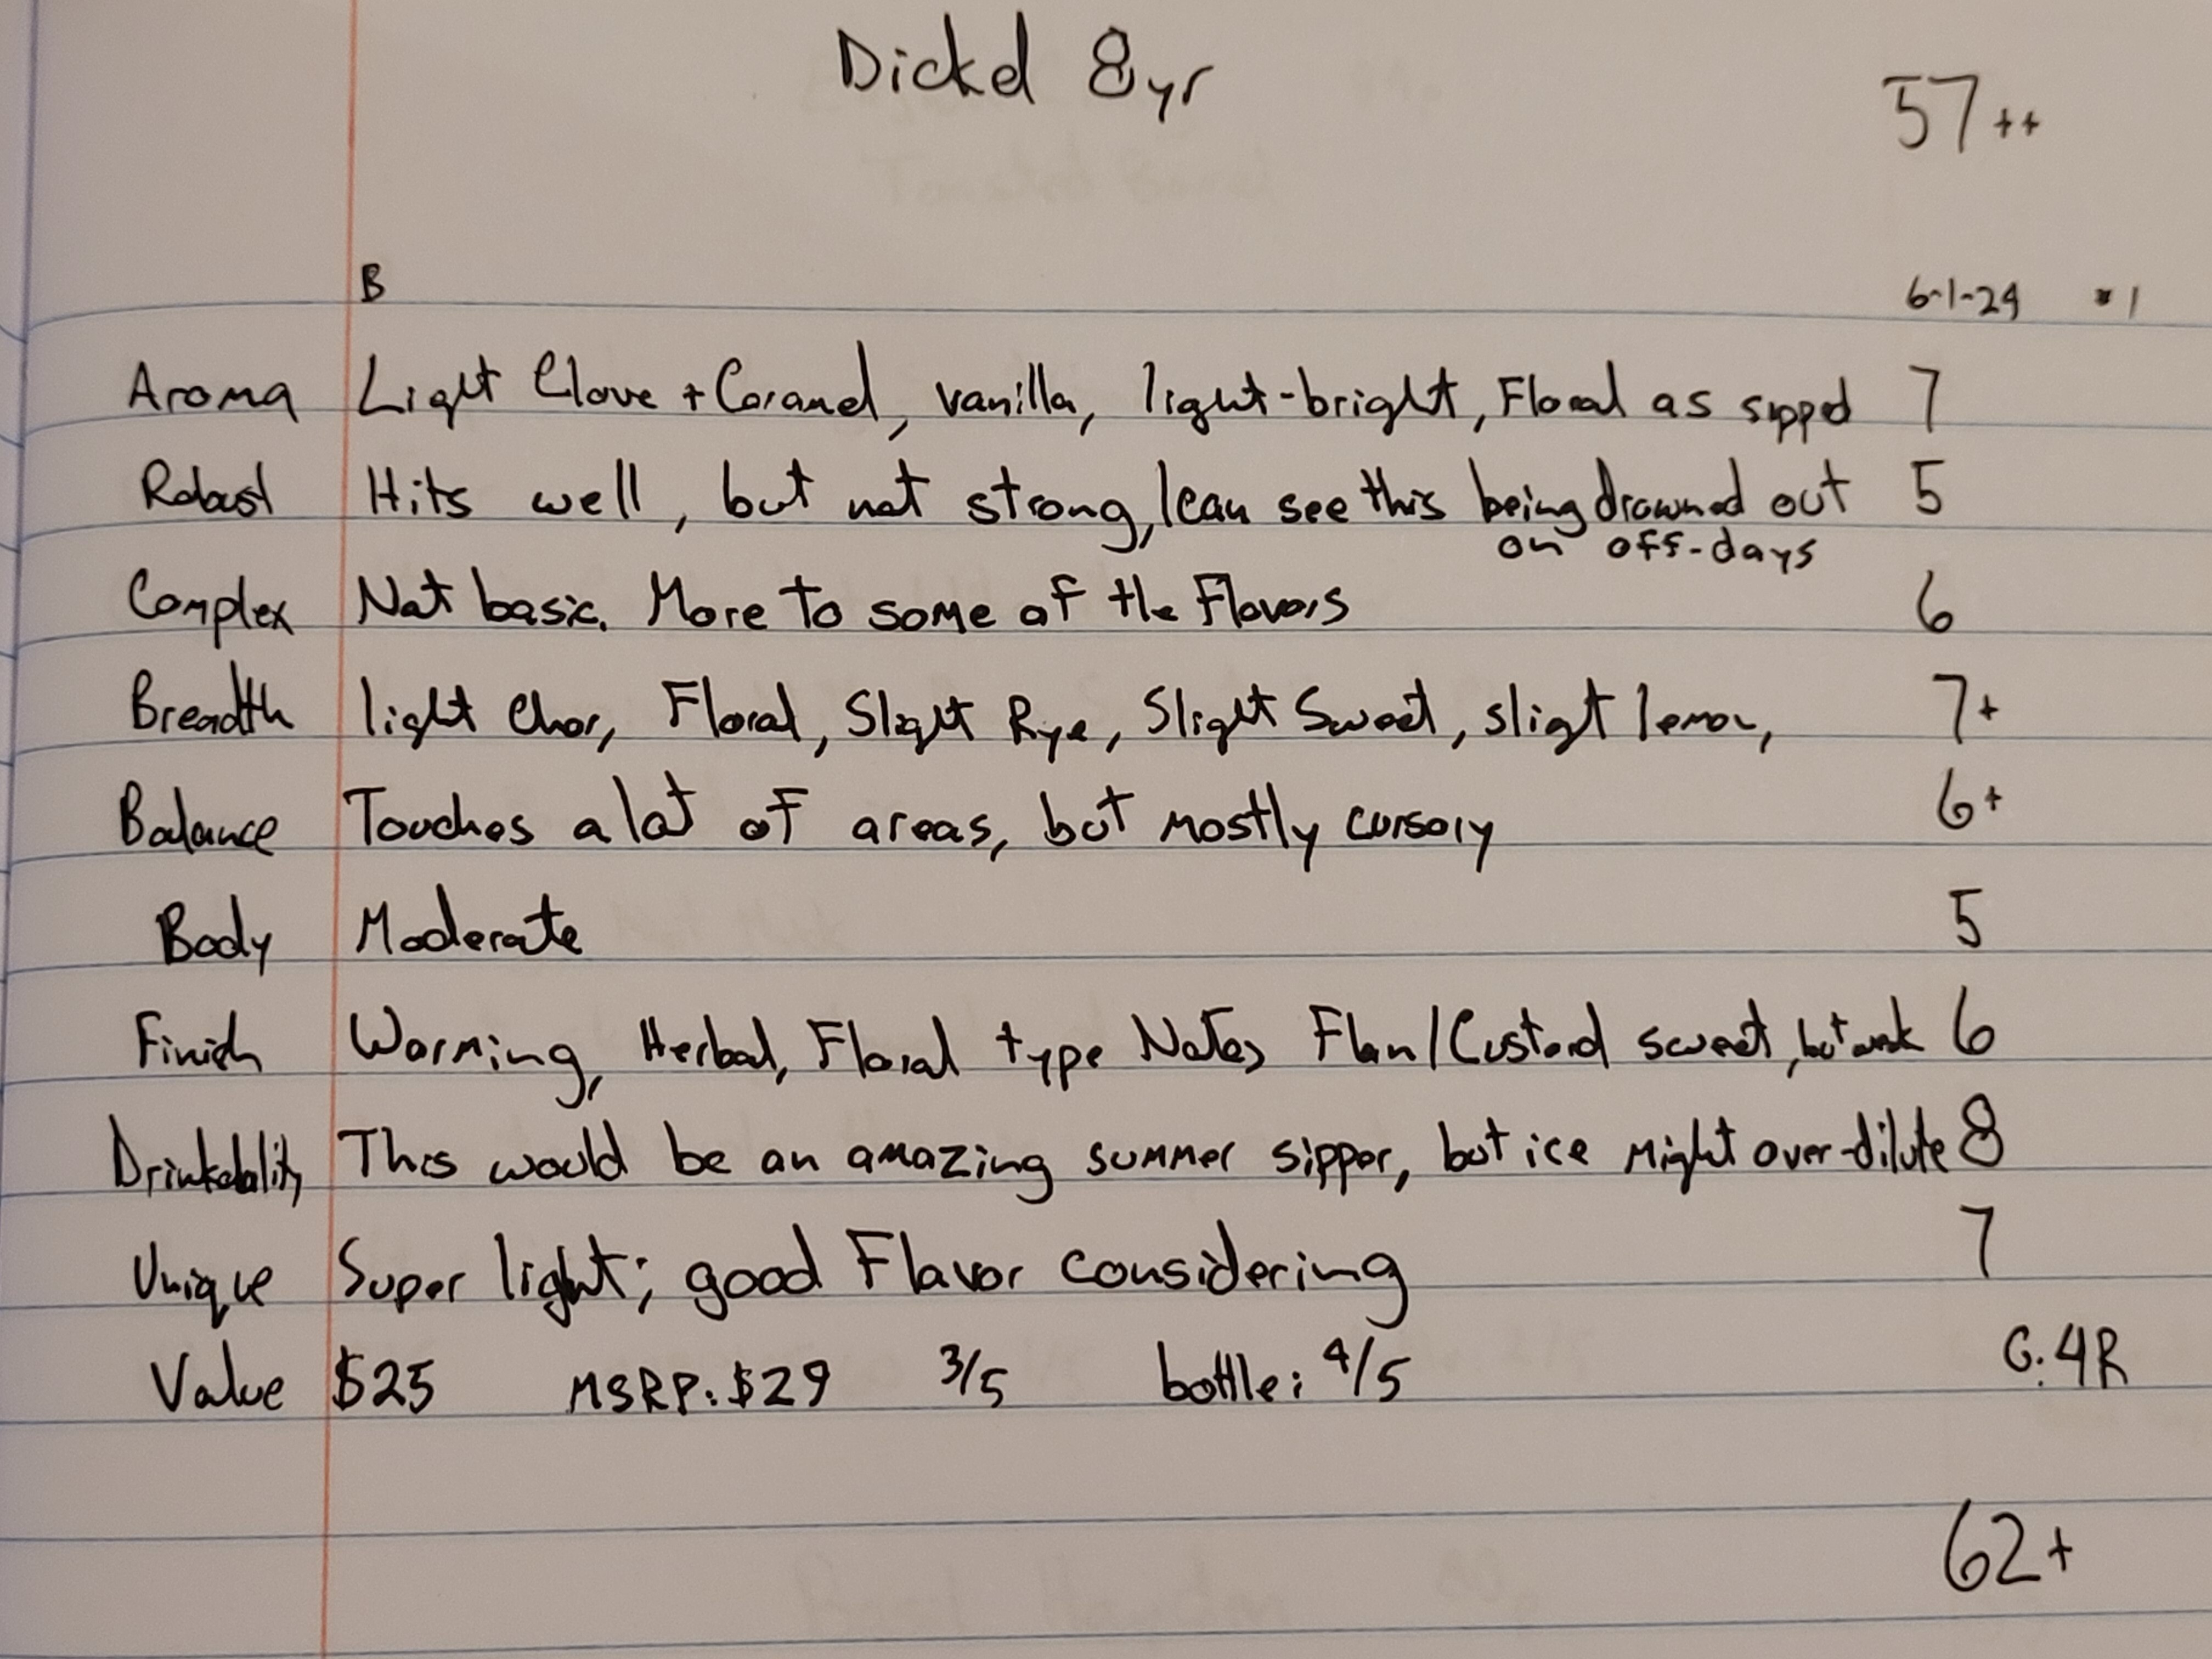 Dickel 8yr
57++
B 6-1-24 #1
Aroma Light Clove + Caramel, vanilla, light-bright, Floral as sipped 7
Robust Hits well, but not strong, I can see this being drowned out 5
on off-days
Complex Not basic. More to some of the Flavors 6
Breadth light Char, Floral, Slight Rye, Slight Sweet, slight lemon, 7+
Balance Touches a lot of areas, but mostly cursory 6+
Body Moderate 5
Finish Warming, Herbal, Floral type Notes, Flan/Custard sweet, but weak 6
Drinkability This would be an amazing summer sipper, but ice might over-dilute 8
Unique Super light; good Flavor considering 7
Value $25 MSRP: $29 3/5 bottle: 4/5 G: 4R
62+